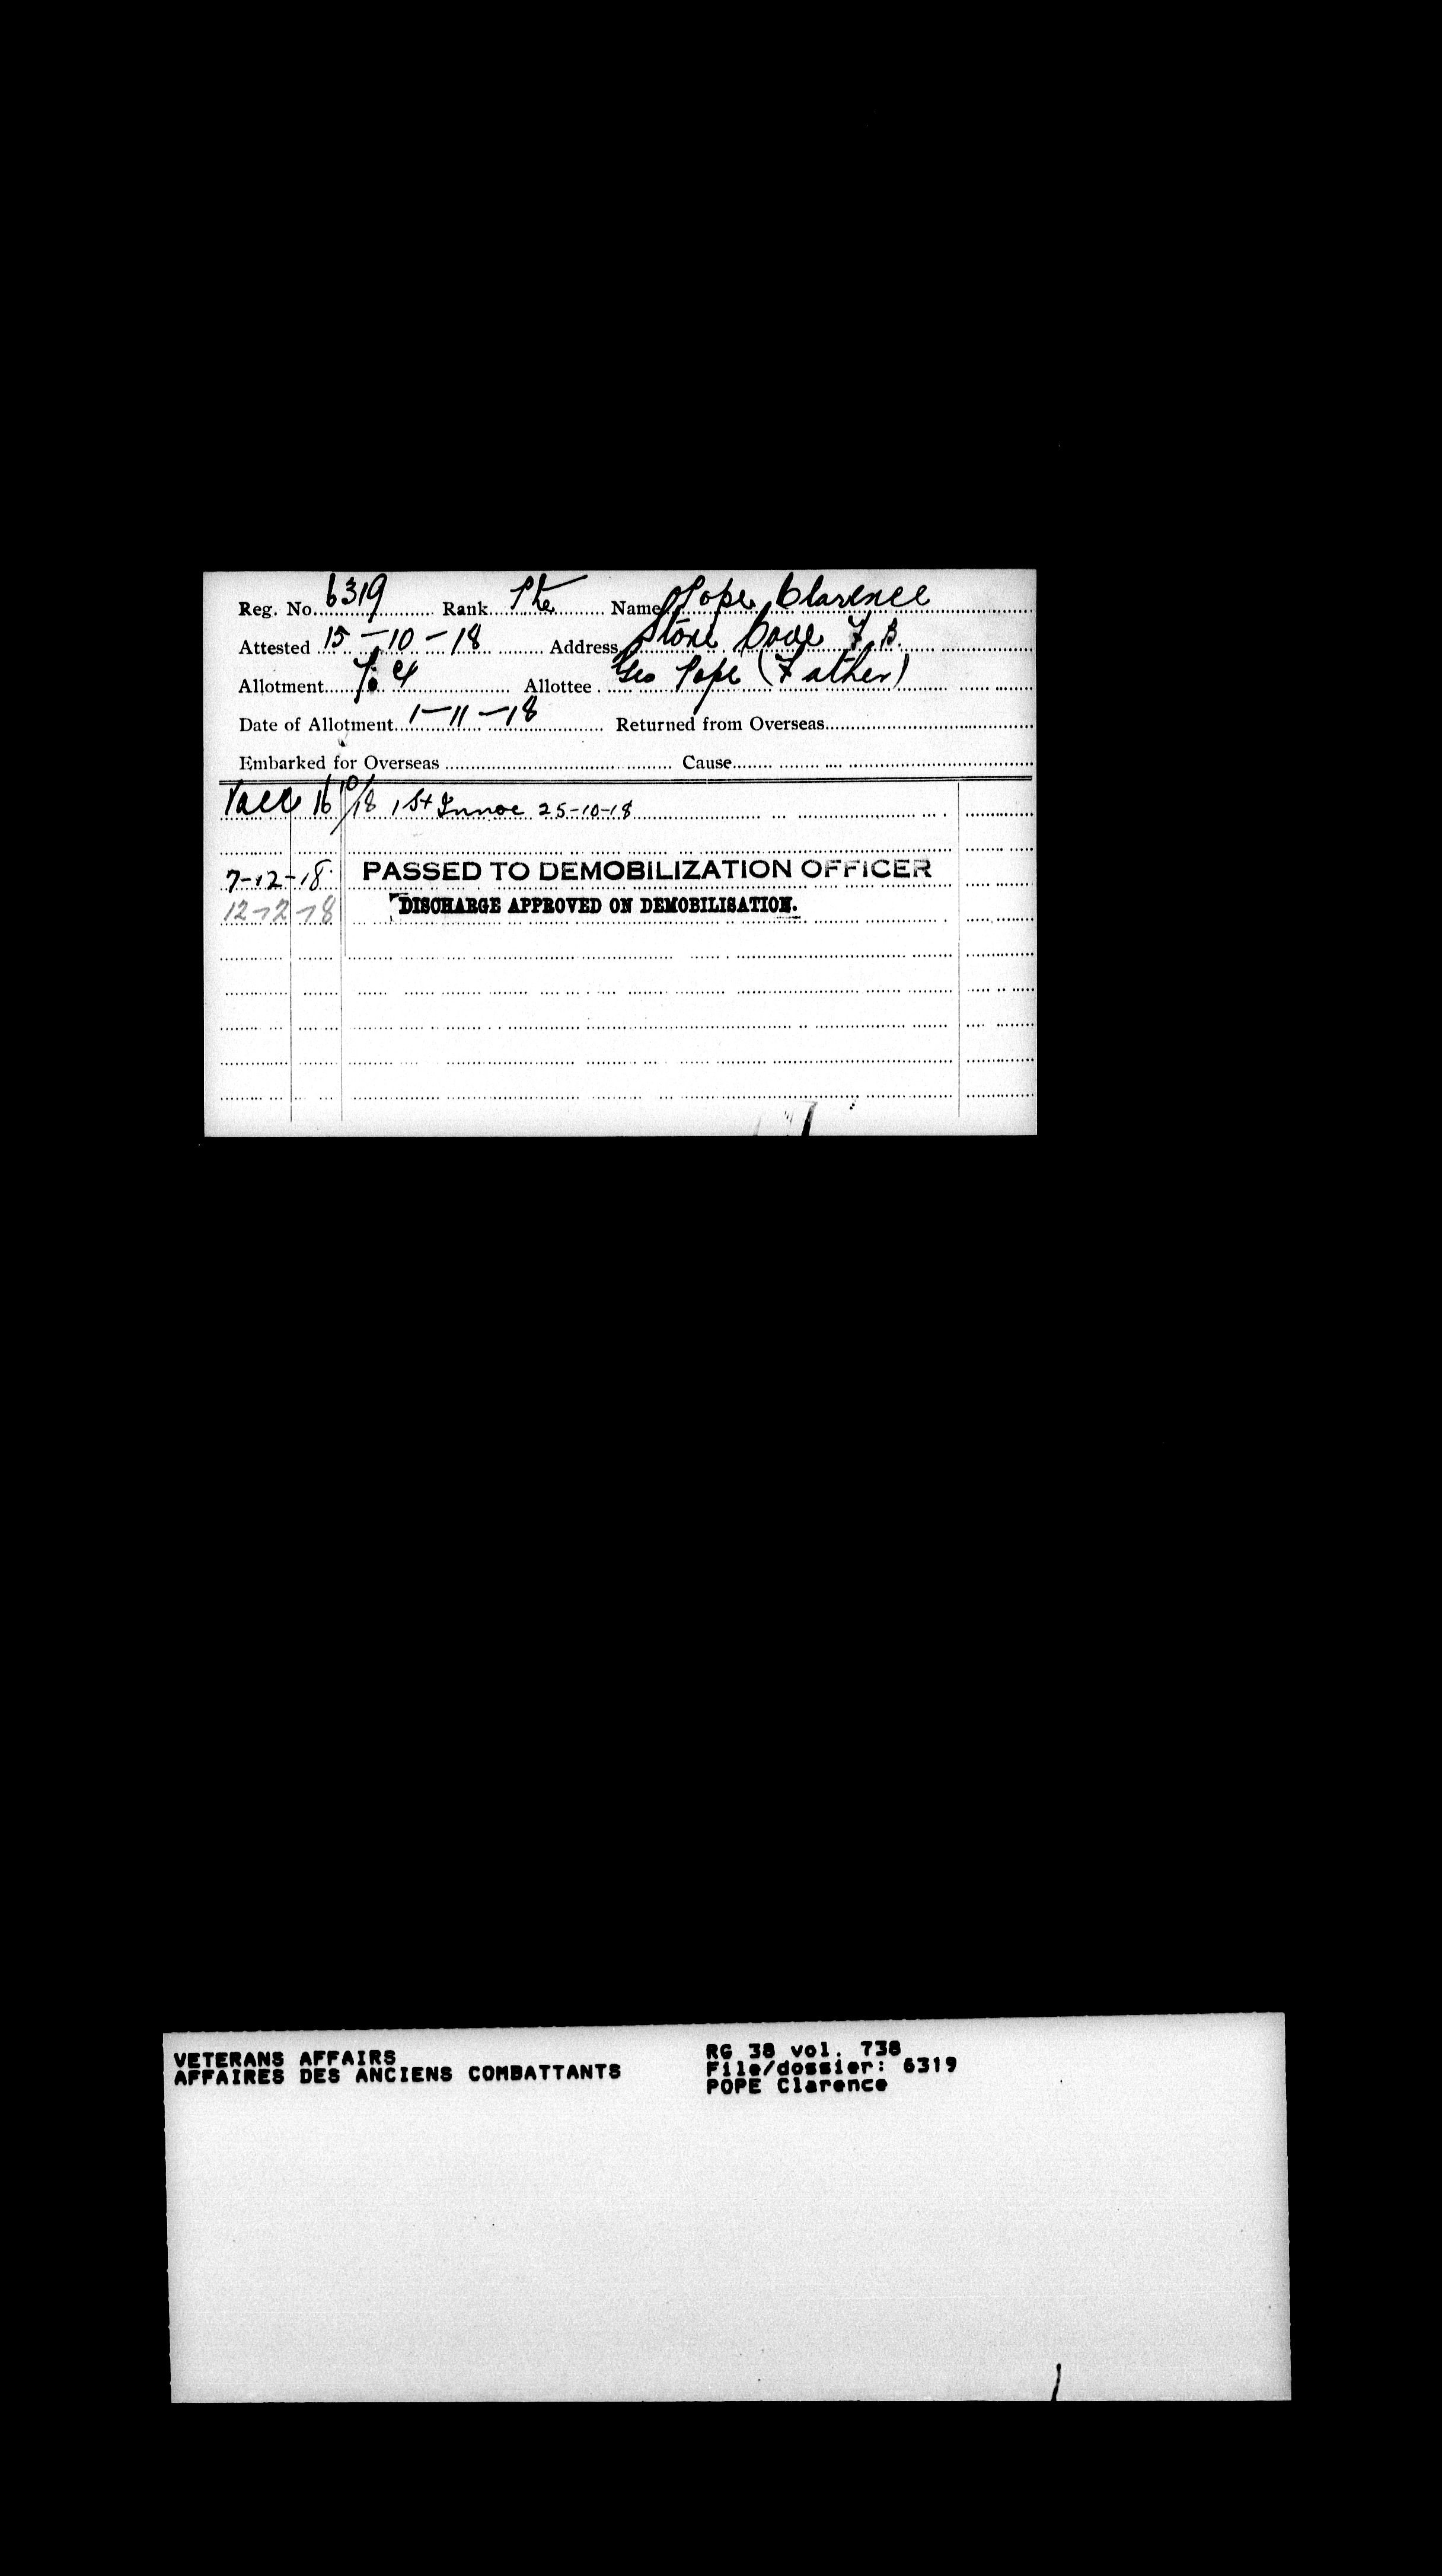 Reg. No. 6319 Rank Pte Name Pope Clarence
Attested 15-10-18 Address Stone Cove F. B.
Allotment Allottee Geo Pope (Father)
Date of Allotment 1-11-18 Returned from Overseas
Embarked for Overseas Cause
Vacc 16/10/18 1st Innoc 25-10-18
7-12-18 PASSED TO DEMOBILIZATION OFFICER
12-12-18 DISCHARGE APPROVED ON DEMOBILISATION.
VETERANS AFFAIRS RG 38 vol. 738
AFFAIRES DES ANCIENS COMBATTANTS File/dossier: 6319
POPE Clarence